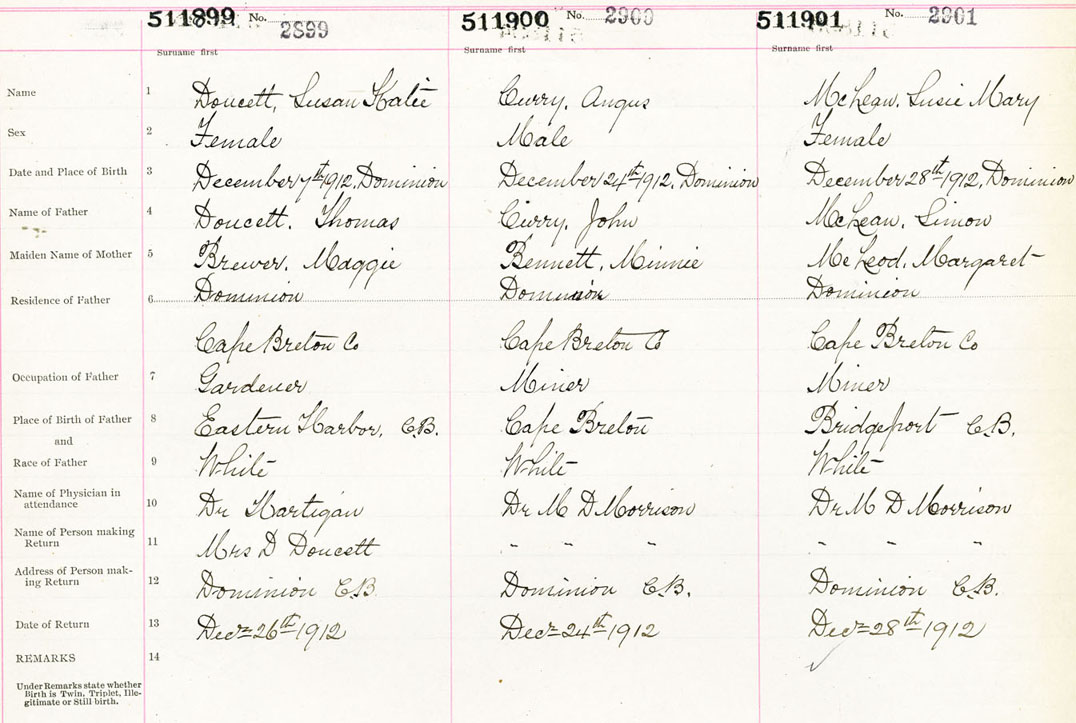 511899 No. 2899 511900 No. 2900 511901 No. 2901
Surname first Surname first Surname first
Name 1 Doucett, Susan Katie Curry, Angus McLean, Susie Mary
Sex 2 Female Male Female
Date and Place of Birth 3 December 7th 1912, Dominion December 24th 1912, Dominion December 28th 1912, Dominion
Name of Father 4 Doucett, Thomas Curry, John McLean, Simon
Maiden Name of Mother 5 Brewer, Maggie Bennett, Minnie McLeod, Margaret
Residence of Father 6 Dominion Dominion Dominion
Cape Breton Co Cape Breton Co Cape Breton Co
Occupation of Father 7 Gardener Miner Miner
Place of Birth of Father 8 Eastern Harbor, C.B. Cape Breton Bridgeport C.B.
and
Race of Father 9 White White White
Name of Physician in
attendance 10 Dr Hartigan Dr M D Morrison Dr M D Morrison
Name of Person making
Return 11 Mrs D Doucett " " " " " "
Address of Person mak-
ing Return 12 Dominion C.B. Dominion C.B. Dominion C.B.
Date of Return 13 Decr 26th 1912 Decr 24th 1912 Decr 28th 1912
REMARKS 14
Under Remarks state whether
Birth is Twin, Triplet, Ille-
gitimate or Still birth.